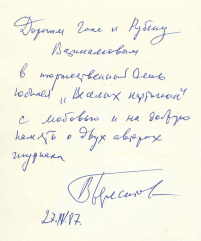 Дорогим Гале и Рубену
Варшамовым
в торжественный день
юбилея „Веселых картинок“
с любовью и на добрую
память о двух авторах
журнала
27.IV.87.